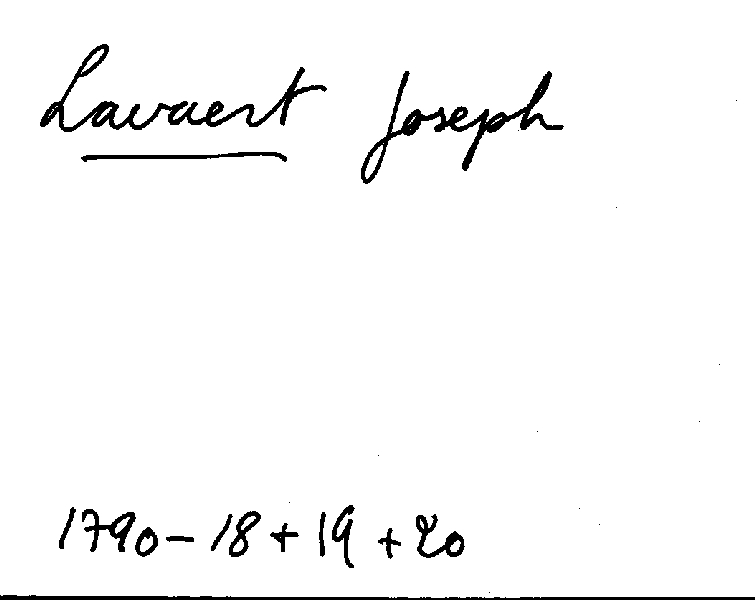 Lavaert Joseph
1790-18+19+20